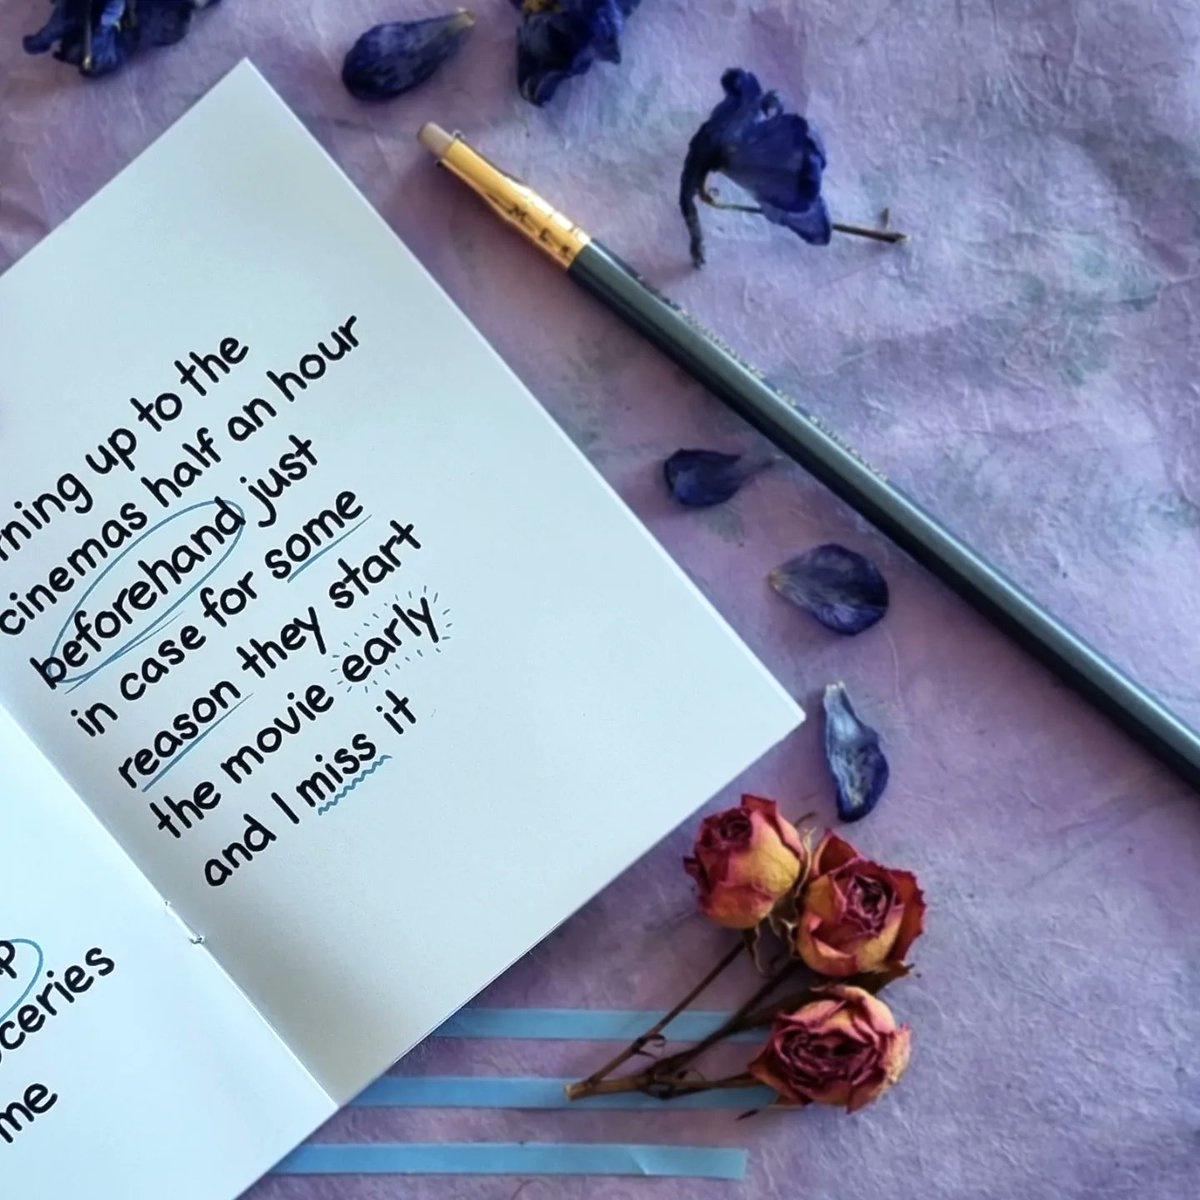 up to the
cinemas half an hour
beforehand just
in case for some
reason they start
the movie early
and I miss it
me